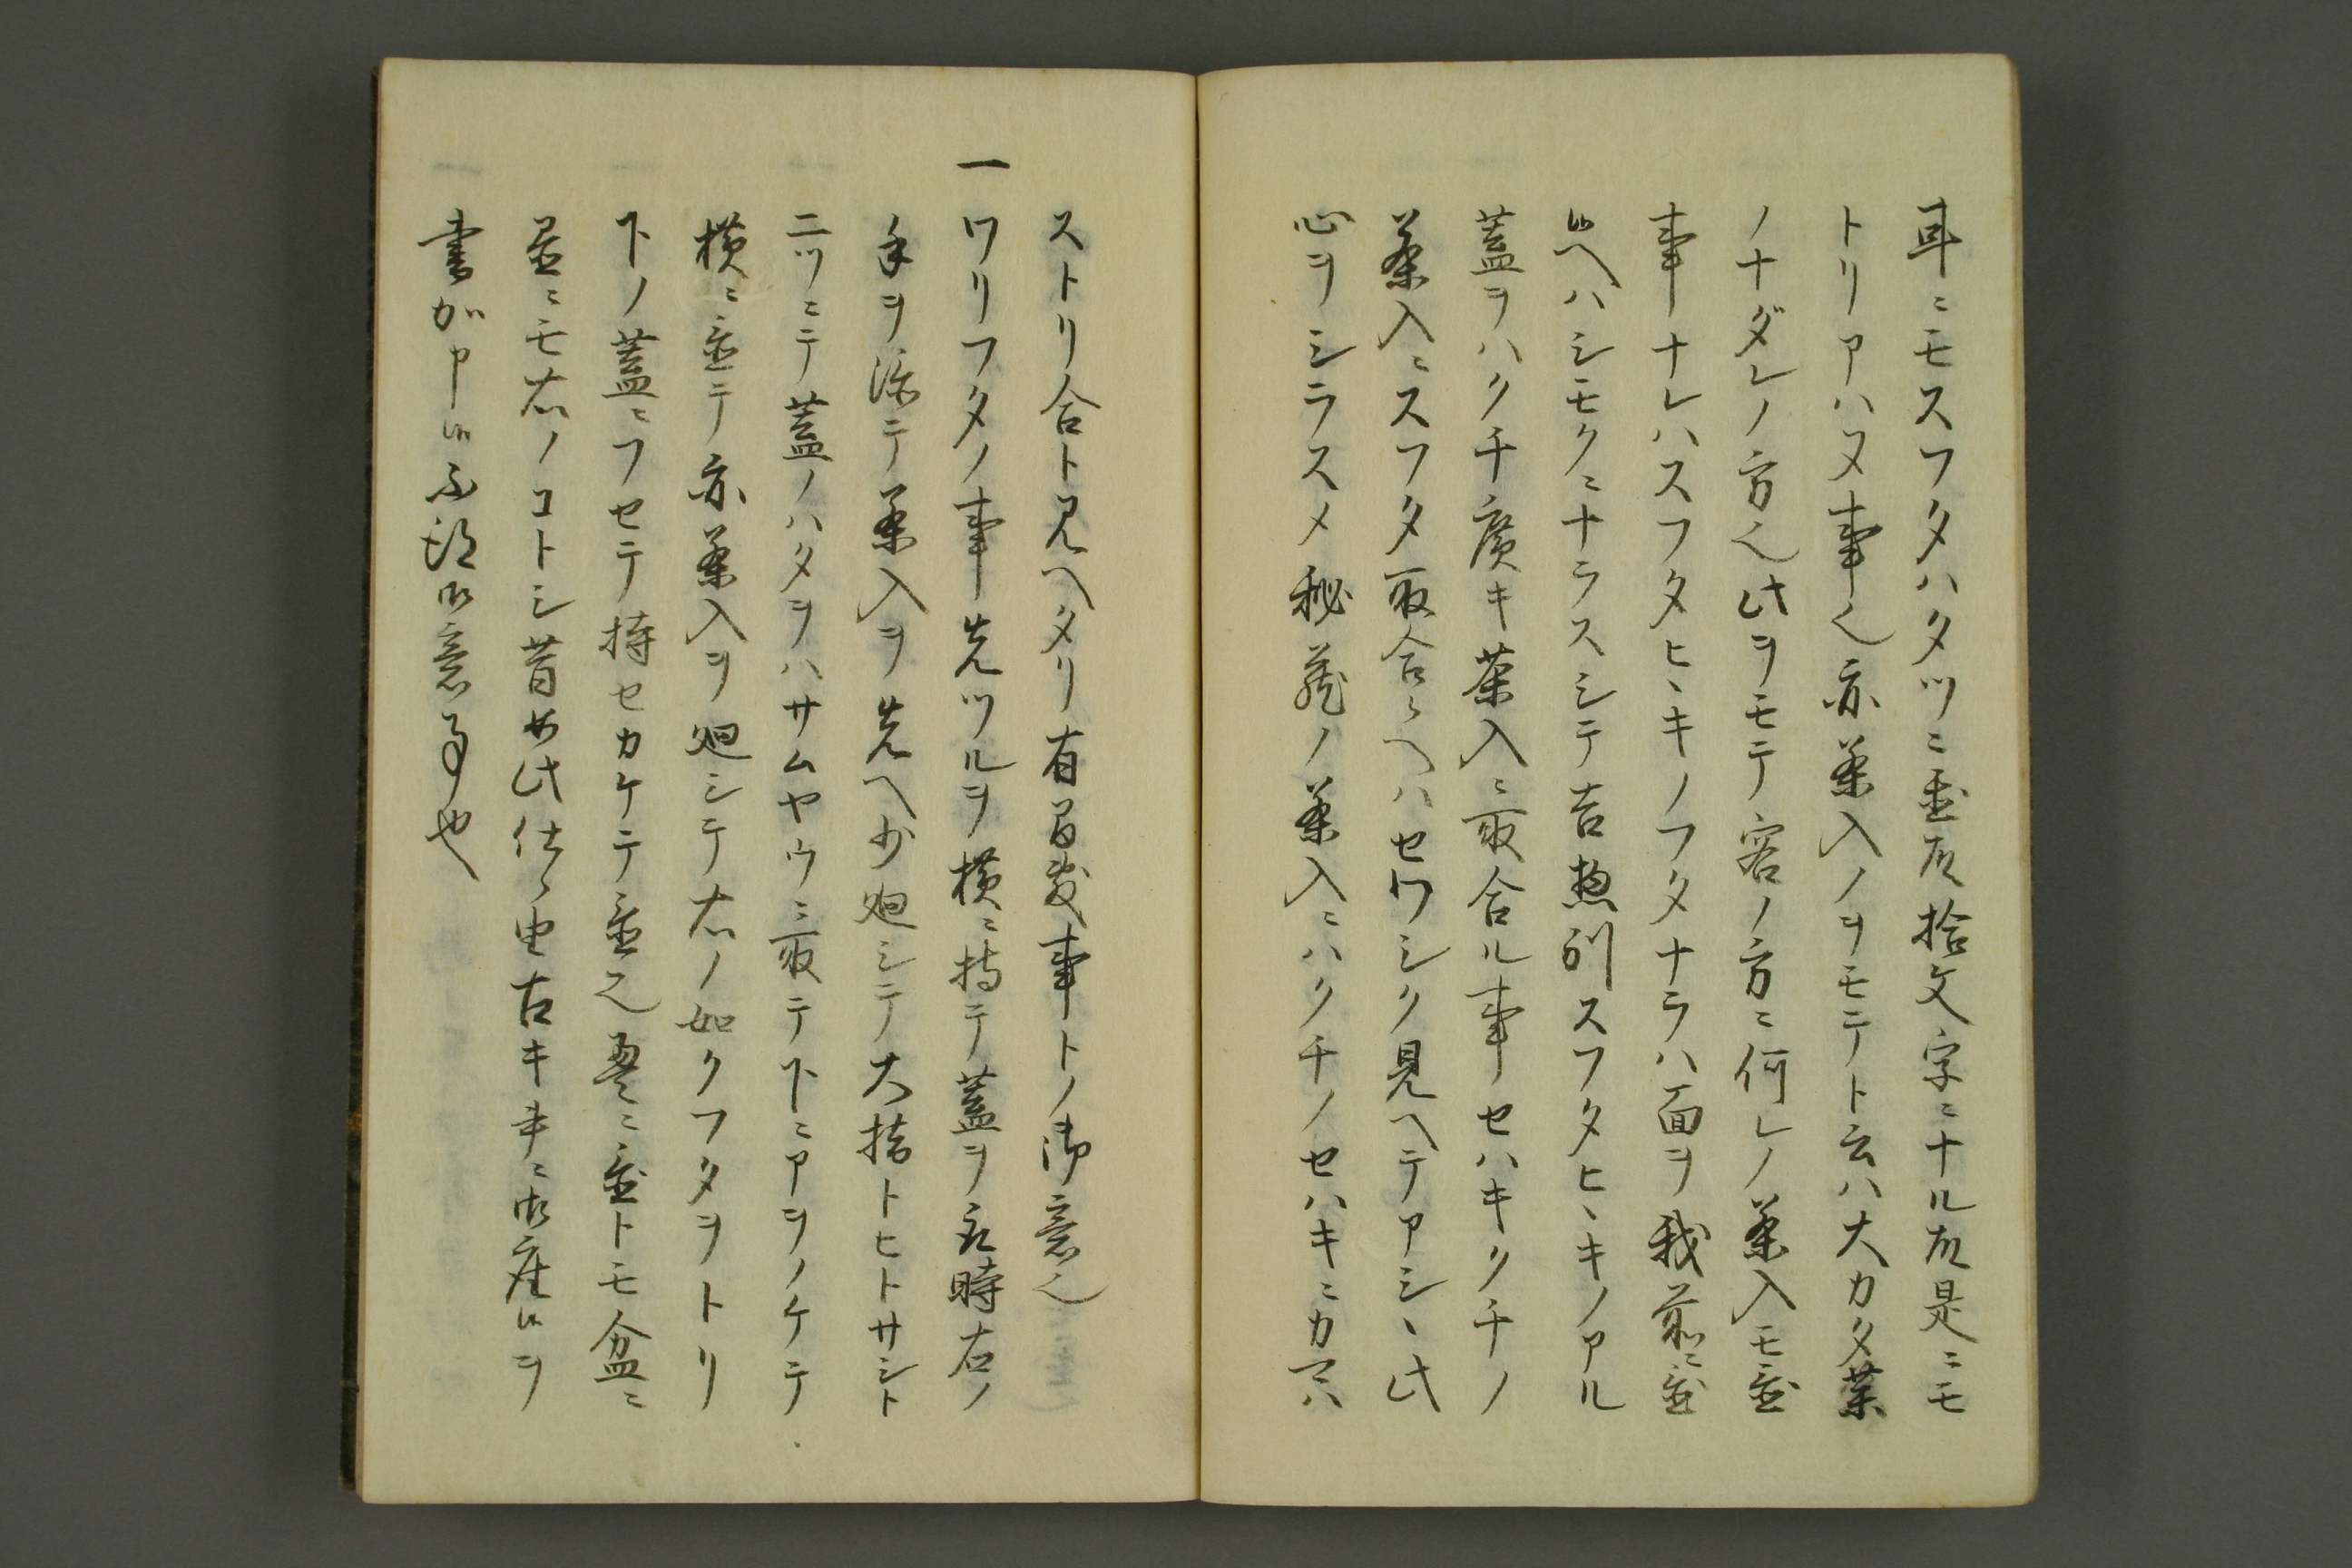 耳ニモスフタハタツニ置左拾文字ニナル左是ニモ
トリアハヌ事也亦茶入ノヲモテト云ハ大カタ葉
ノナダレノ方也此ヲモテ客ノ方ニ何レノ茶入モ置
事ナレハスフタヒヽキノフタナラハ面ヲ我前ニ置
候ヘハシモクニナラスシテ吉惣別スフタヒヽキノアル
蓋ヲハクチ廣キ茶入ニ取合ル事セハキクチノ
茶入ニスフタ取合候ヘハセワシク見ヘテアシヽ此
心ヲシラスメ秘蔵ノ茶入ニハクチノセハキニカマハ
ストリ合ト見ヘタリ有間敷事トノ御意也
一ワリフタノ事先ツルヲ横ニ持テ蓋ヲ取時右ノ
手ヲ添テ茶入ヲ先ヘ少廻シテ大指トヒトサシト
二ツニテ蓋ノハタヲハサムヤウニ取テ下ニアヲノケテ
横ニ置テ亦茶入ヲ廻シテ右ノ如クフタヲトリ
下ノ蓋ニフセテ持セカケテ置也畳ニ置トモ盆ニ
置ニモ右ノコトシ昔如此仕候由古キ書ニ御座候ヲ
書が申候不殘御意事也